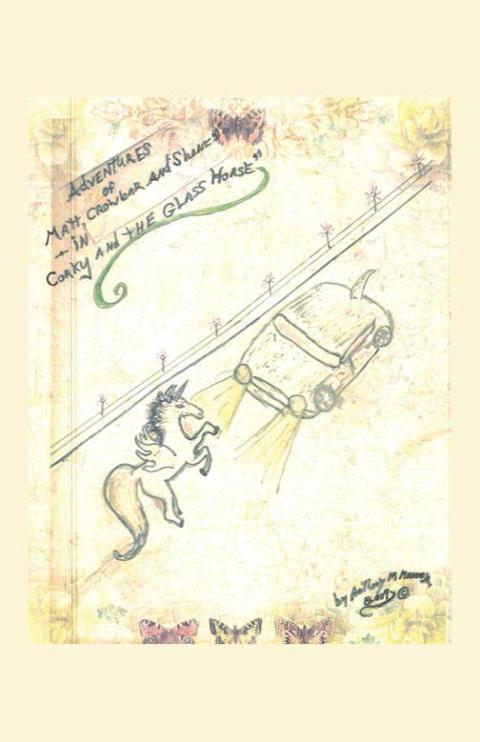 ADVENTURES
OF
MATT, CROWBAR AND SHANE"
- IN
CORKY AND THE GLASS HORSE"
by Anthony M
©